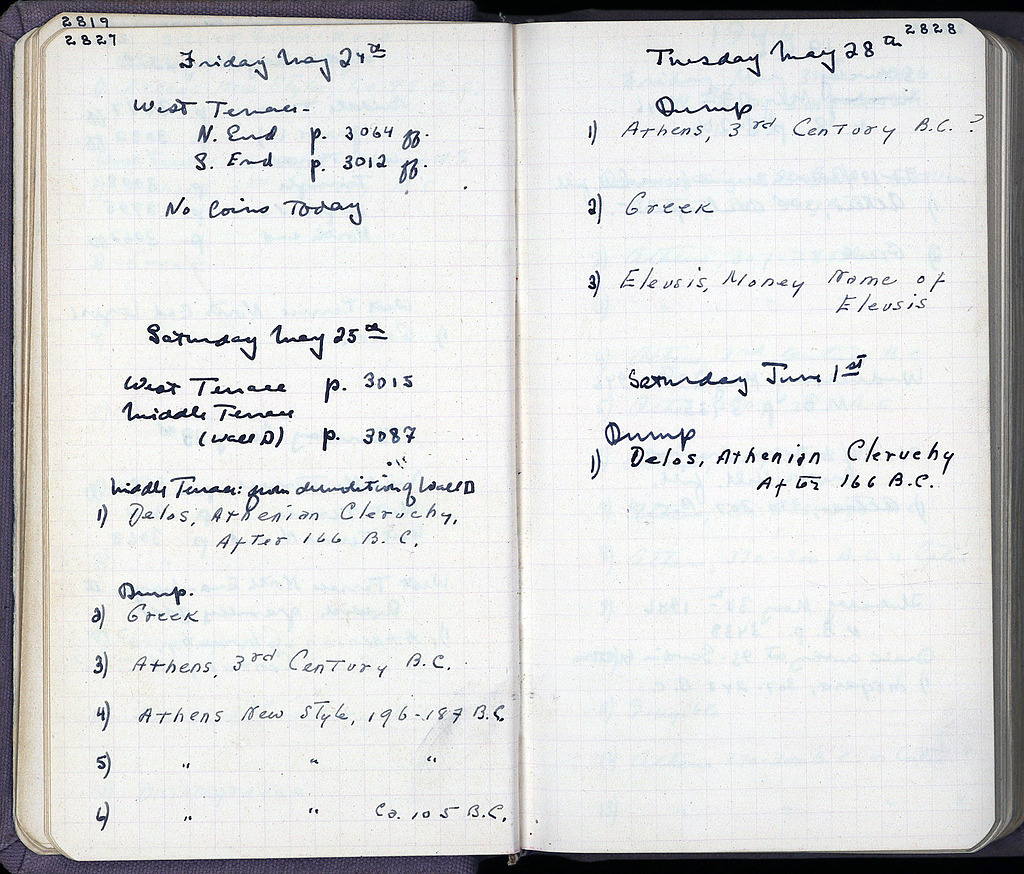 2819
2827
Friday May 24th
West Terrace-
N. End p. 3064 ff.
S. End p. 3012 ff.
No Coins Today
Saturday May 25th
West Terrace p. 3015
Middle Terrace
(Wall D) p. 3087
Middle Terrace: from demolition of Wall D
1) Delos, Athenian Cleruchy,
After 166 B.C.
Dump.
2) Greek
3) Athens, 3rd Century B.C.
4) Athens New Style, 196-187 B.C.
5) " " "
6) " " Ca. 105 B.C.
2828
Tuesday May 28th
Dump
1) Athens, 3rd Century B.C. ?
2) Greek
3) Eleusis, Money Name of
Eleusis
Saturday June 1st
Dump
1) Delos, Athenian Cleruchy
After 166 B.C.